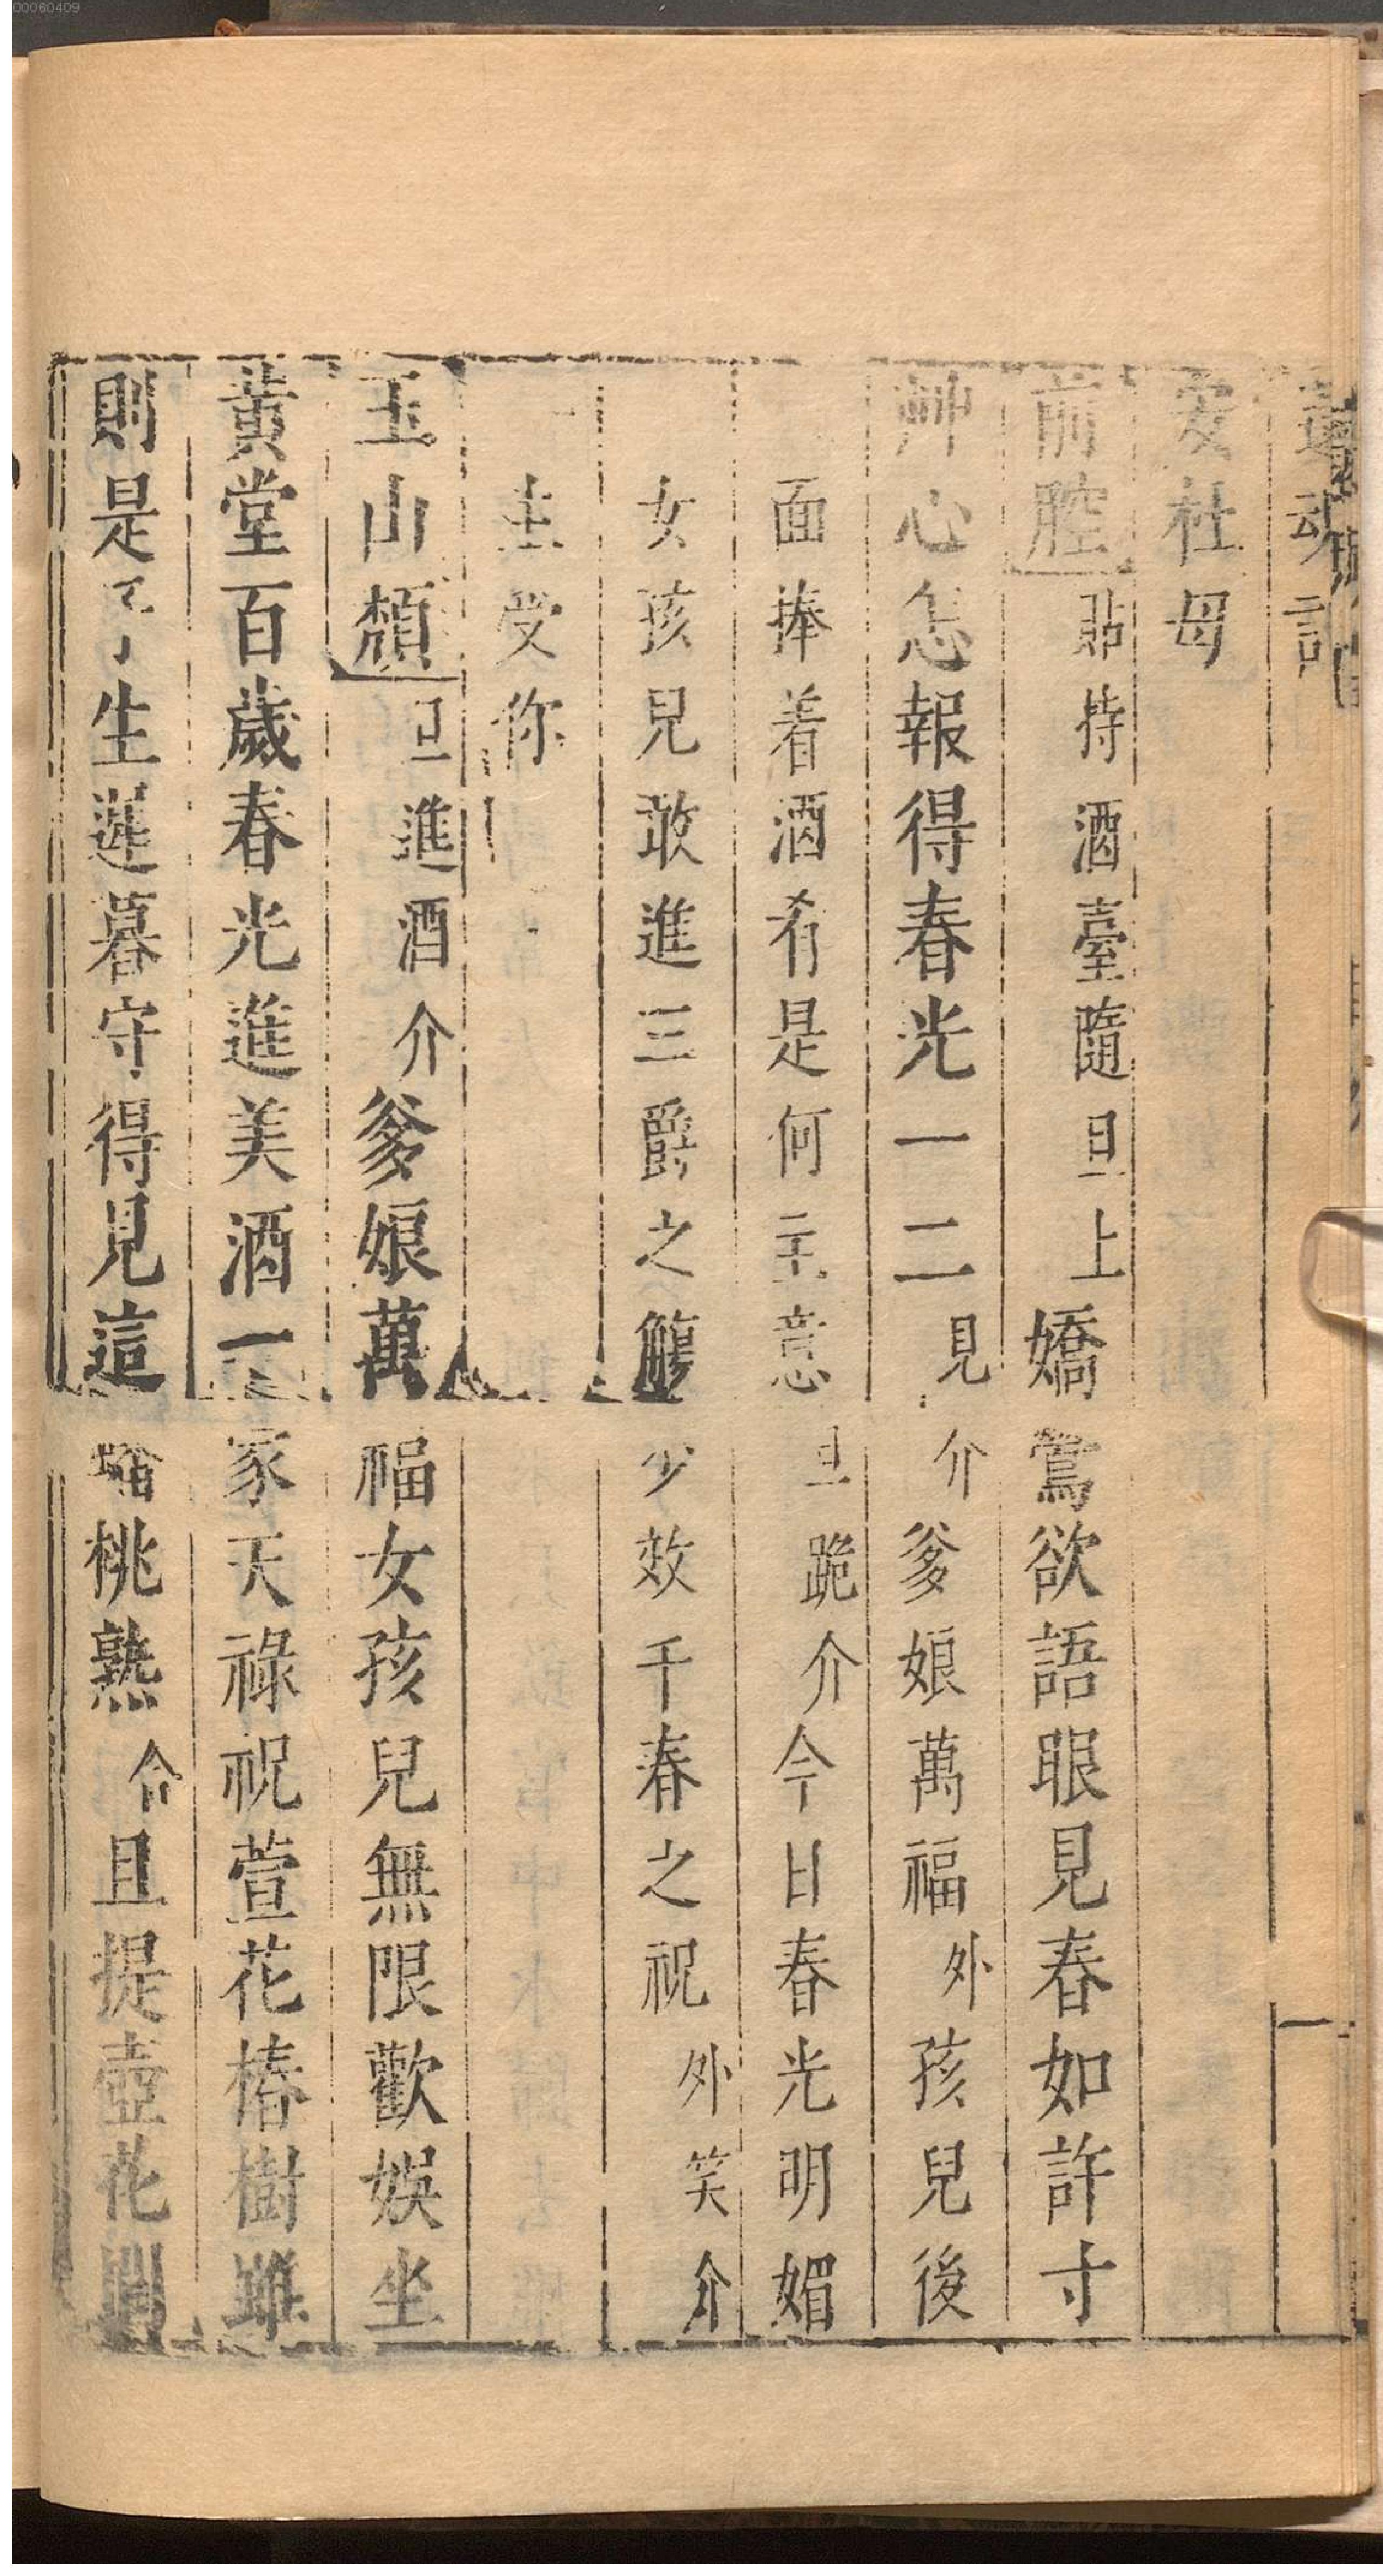 00060409
還魂記
安杜母
前腔 貼持酒臺隨旦上嬌鶯欲語眼見春如許寸
艸心怎報得春光一二見介爹娘萬福外孩兒後
面捧着酒肴是何主意旦跪介今日春光明媚
女孩兒敢進三爵之觴少效千春之祝外笑介
生受你
玉山頹 旦進酒介爹娘萬福女孩兒無限歡娛坐
黃堂百歲春光進美酒一家天祿祝萱花椿樹雖
則是子生遲暮守得見這蟠桃熟合且提壺花間